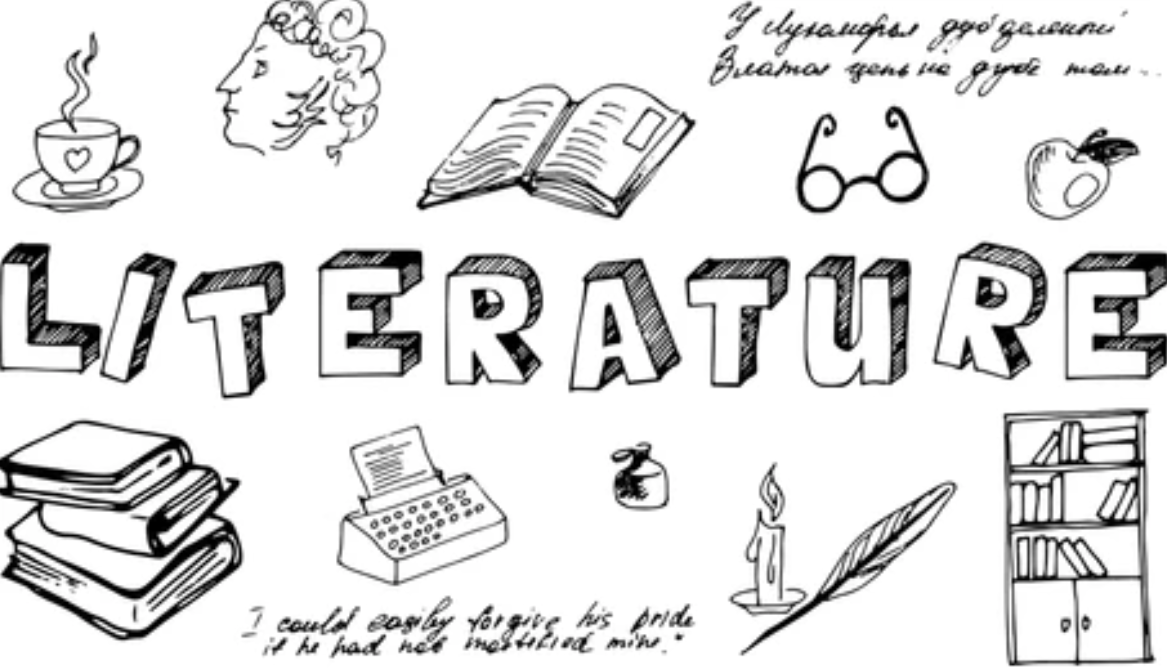 У лукоморья дуб зеленый
Златая цепь на дубе том...
LITERATURE
I could easily forgive his pride
if he had not mortified mine."